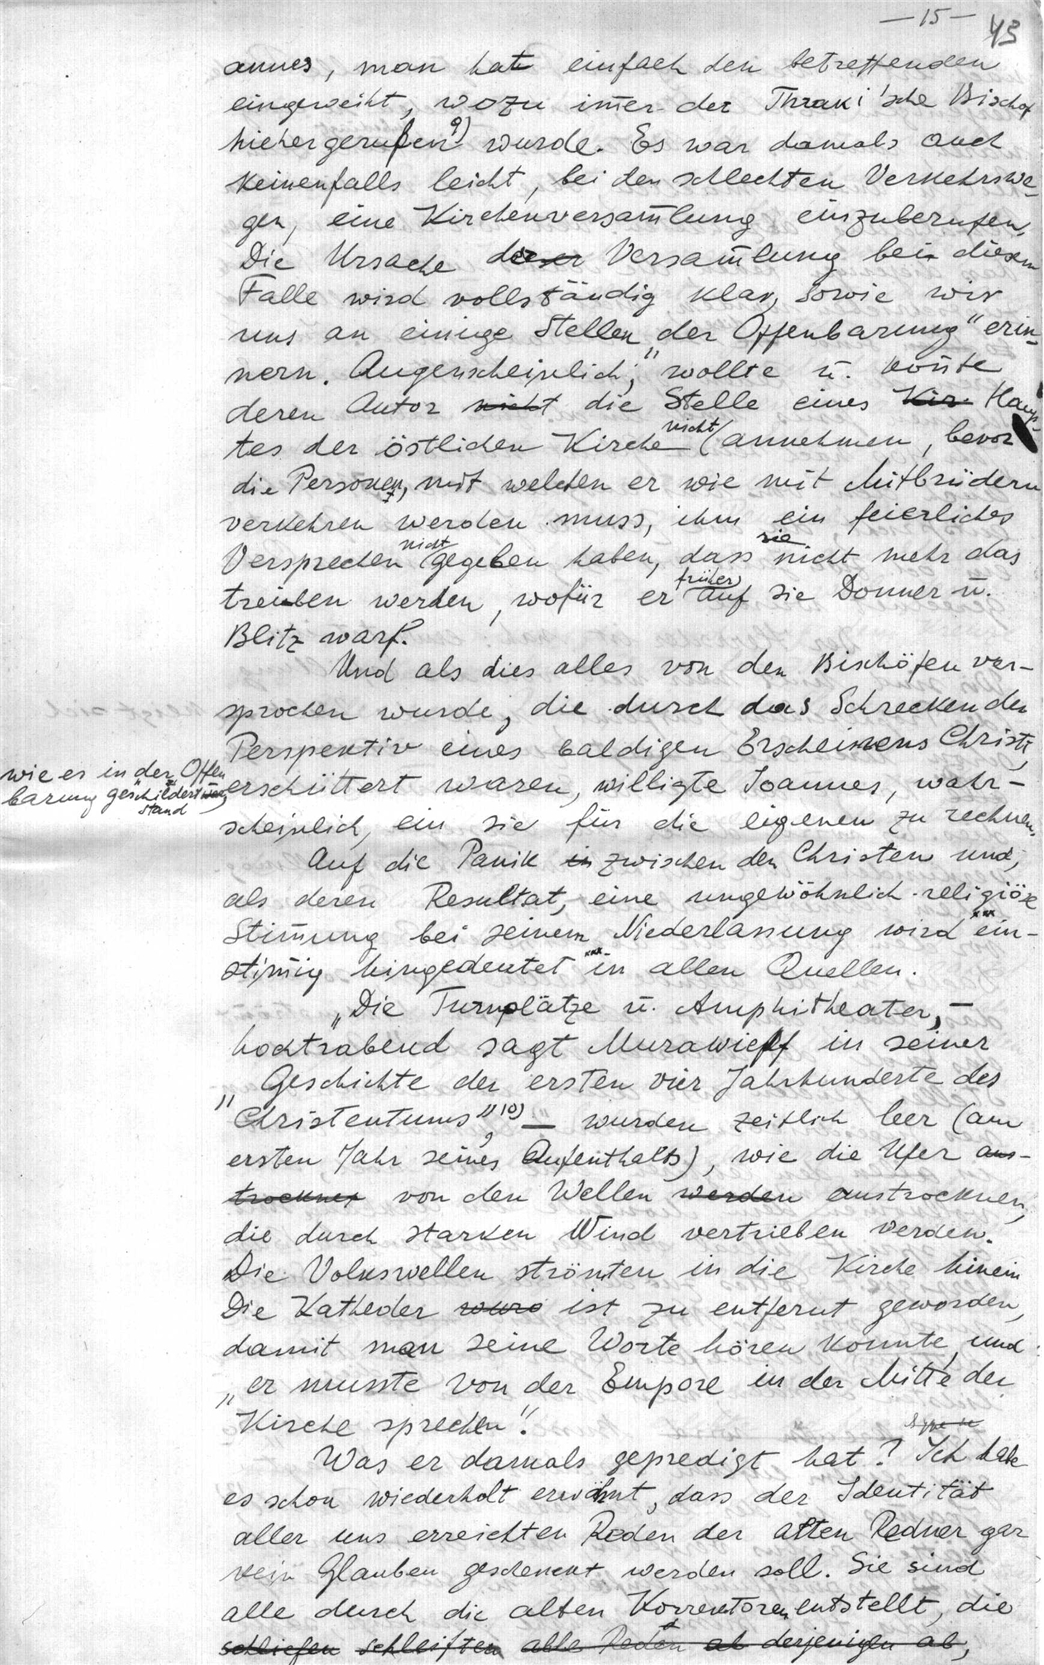 — 15 — 43
annes, man hat einfach den betreffenden
eingeweiht, wozu im̄er der Thraki'sche Bischof
hiehergerufen 9) wurde. Es war damals auch
keinenfalls leicht, bei den schlechten Verkehrswe-
gen, eine Kirchenversam̄lung einzuberufen.
Die Ursache dieser Versam̄lung bei diesem
Falle wird vollständig klar, sowie wir
uns an einige Stellen „der Offenbarung" erin-
nern. Augenscheinlich, wollte u. kon̄te
deren Autor nicht die Stelle eines Kir Haup-
tes der östlichen Kirche nicht annehmen, bevor
die Personen, mit welchen er wie mit Mitbrüdern
verkehren werden muss, ihm ein feierliches
Versprechen nicht gegeben haben, dass sie nicht mehr das
treiben werden, wofür er früher auf sie Donner u.
Blitz warf.
Und als dies alles von den Bischöfen ver-
sprochen wurde, die durch das Schrecken der
Perspektiv eines baldigen Erscheinens Christi,
wie es in der Offen
barung geschildert
stand,
erschüttert waren, willigte Joannes, wahr-
scheinlich, ein sie für die eigenen zu rechnen.
Auf die Panik in zwischen den Christen und,
als deren Resultat, eine ungewöhnlich religiöse
Stim̄ung bei seinem Niederlassung wird ein-
stim̄ig hingedeutet in allen Quellen.
„Die Turnplätze u. Amphitheater, —
hochtrabend sagt Murawieff in seiner
„Geschichte der ersten vier Jahrhunderte des
Christentums", 10) — wurden zeitlich leer (am
ersten Jahr seines Aufenthalts), wie die Ufer aus-
trocknet von den Wellen werden austrocknen,
die durch starken Wind vertrieben werden.
Die Volkswellen strömten in die Kirche hinein
Die Katheder wurd ist zu entfernt geworden,
damit man seine Worte hören konnte, und
„er musste von der Empore in der Mitte der
„Kirche sprechen".
Was er damals gepredigt hat? Ich habe
es schon wiederholt erwähnt, dass der Identität
aller uns erreichten Reden der alten Redner gar
kein Glauben geschenkt werden soll. Sie sind
alle durch die alten Korrektoren entstellt, die
schliefen schleiften alle Reden ab derjenigen ab,